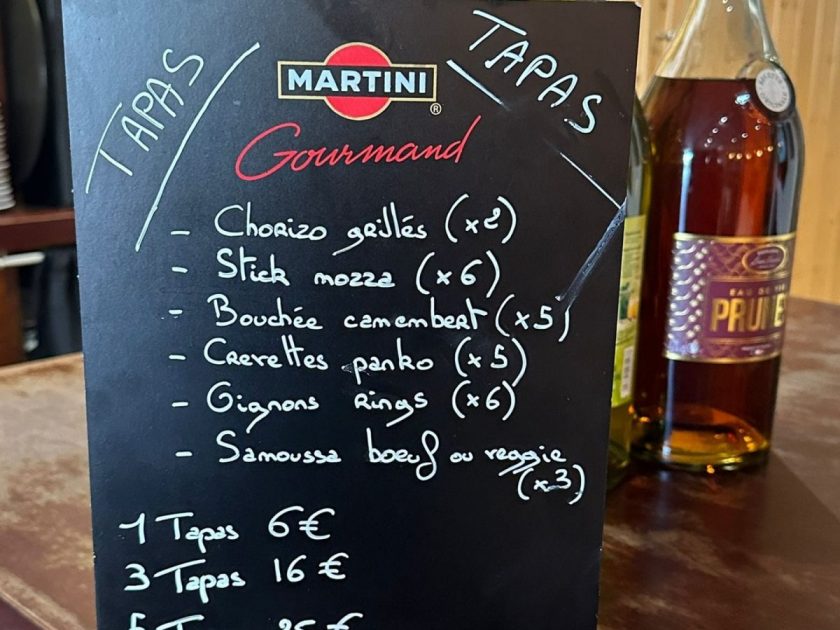 TAPAS
TAPAS
MARTINI
®
Gourmand
- Chorizo grillés (x2)
- Stick mozza (x6)
- Bouchée camembert (x5)
- Crevettes panko (x5)
- Oignons rings (x6)
- Samoussa boeuf ou veggie
(x3)
1 Tapas 6€
3 Tapas 16€
EAU DE VIE
PRUNE